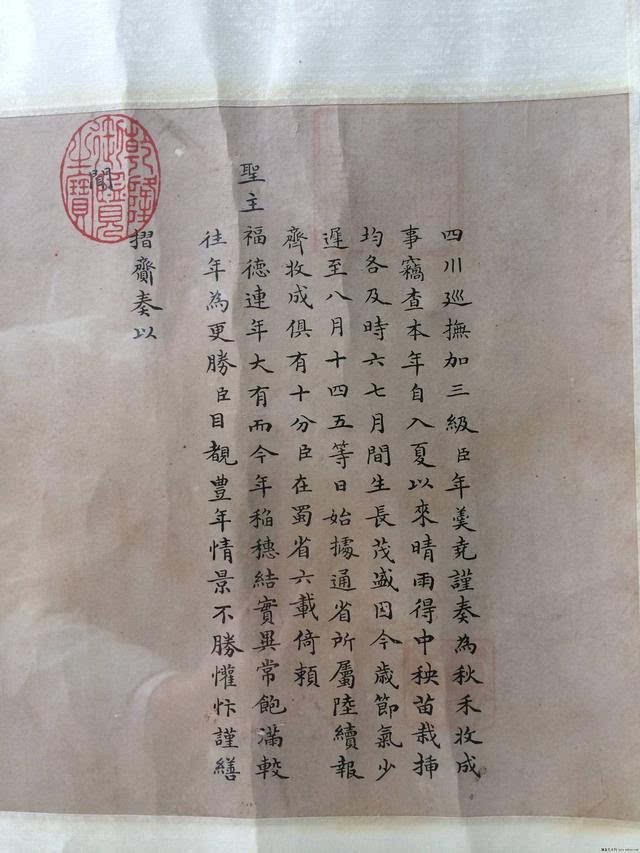 四川巡撫加三級臣年羹堯謹奏為秋禾收成
事竊查本年自入夏以來晴雨得中秧苗栽揷
均各及時六七月間生長茂盛因今歲節氣少
遲至八月十四五等日始據通省所屬陸續報
齊收成俱有十分臣在蜀省六載倚賴
聖主
福德連年大有而今年稲穗結實異常飽滿較
往年為更勝臣目覩豊年情景不勝懽忭謹繕
摺齎奏以
聞
乾隆御覽之寶